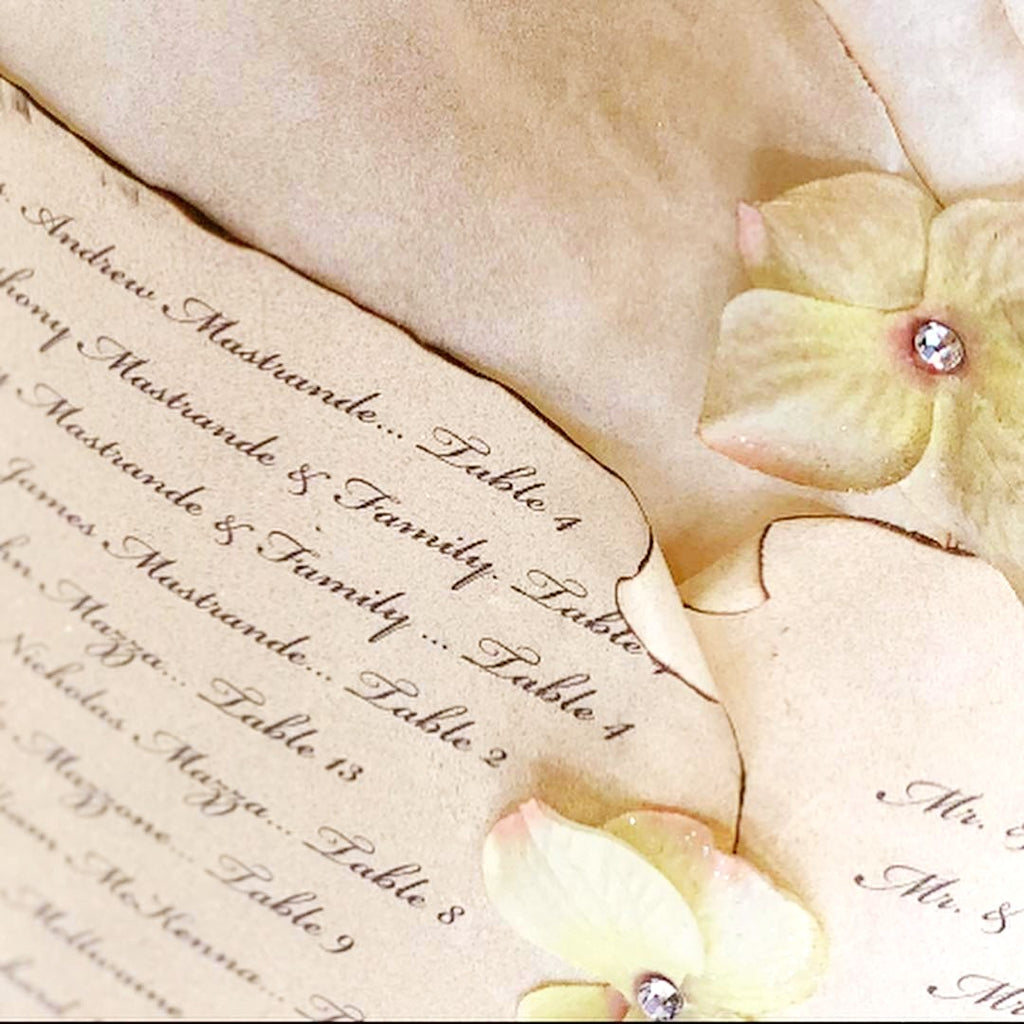 Andrew Mastrande... Table 4
Mastrande & Family. Table 4
Mastrande & Family ... Table 4
James Mastrande... Table 2
Mazza... Table 13
Nicholas Mazza... Table 8
Mazzone... Table 9
McKenna...
Mr. &
Mr. &
Mr.